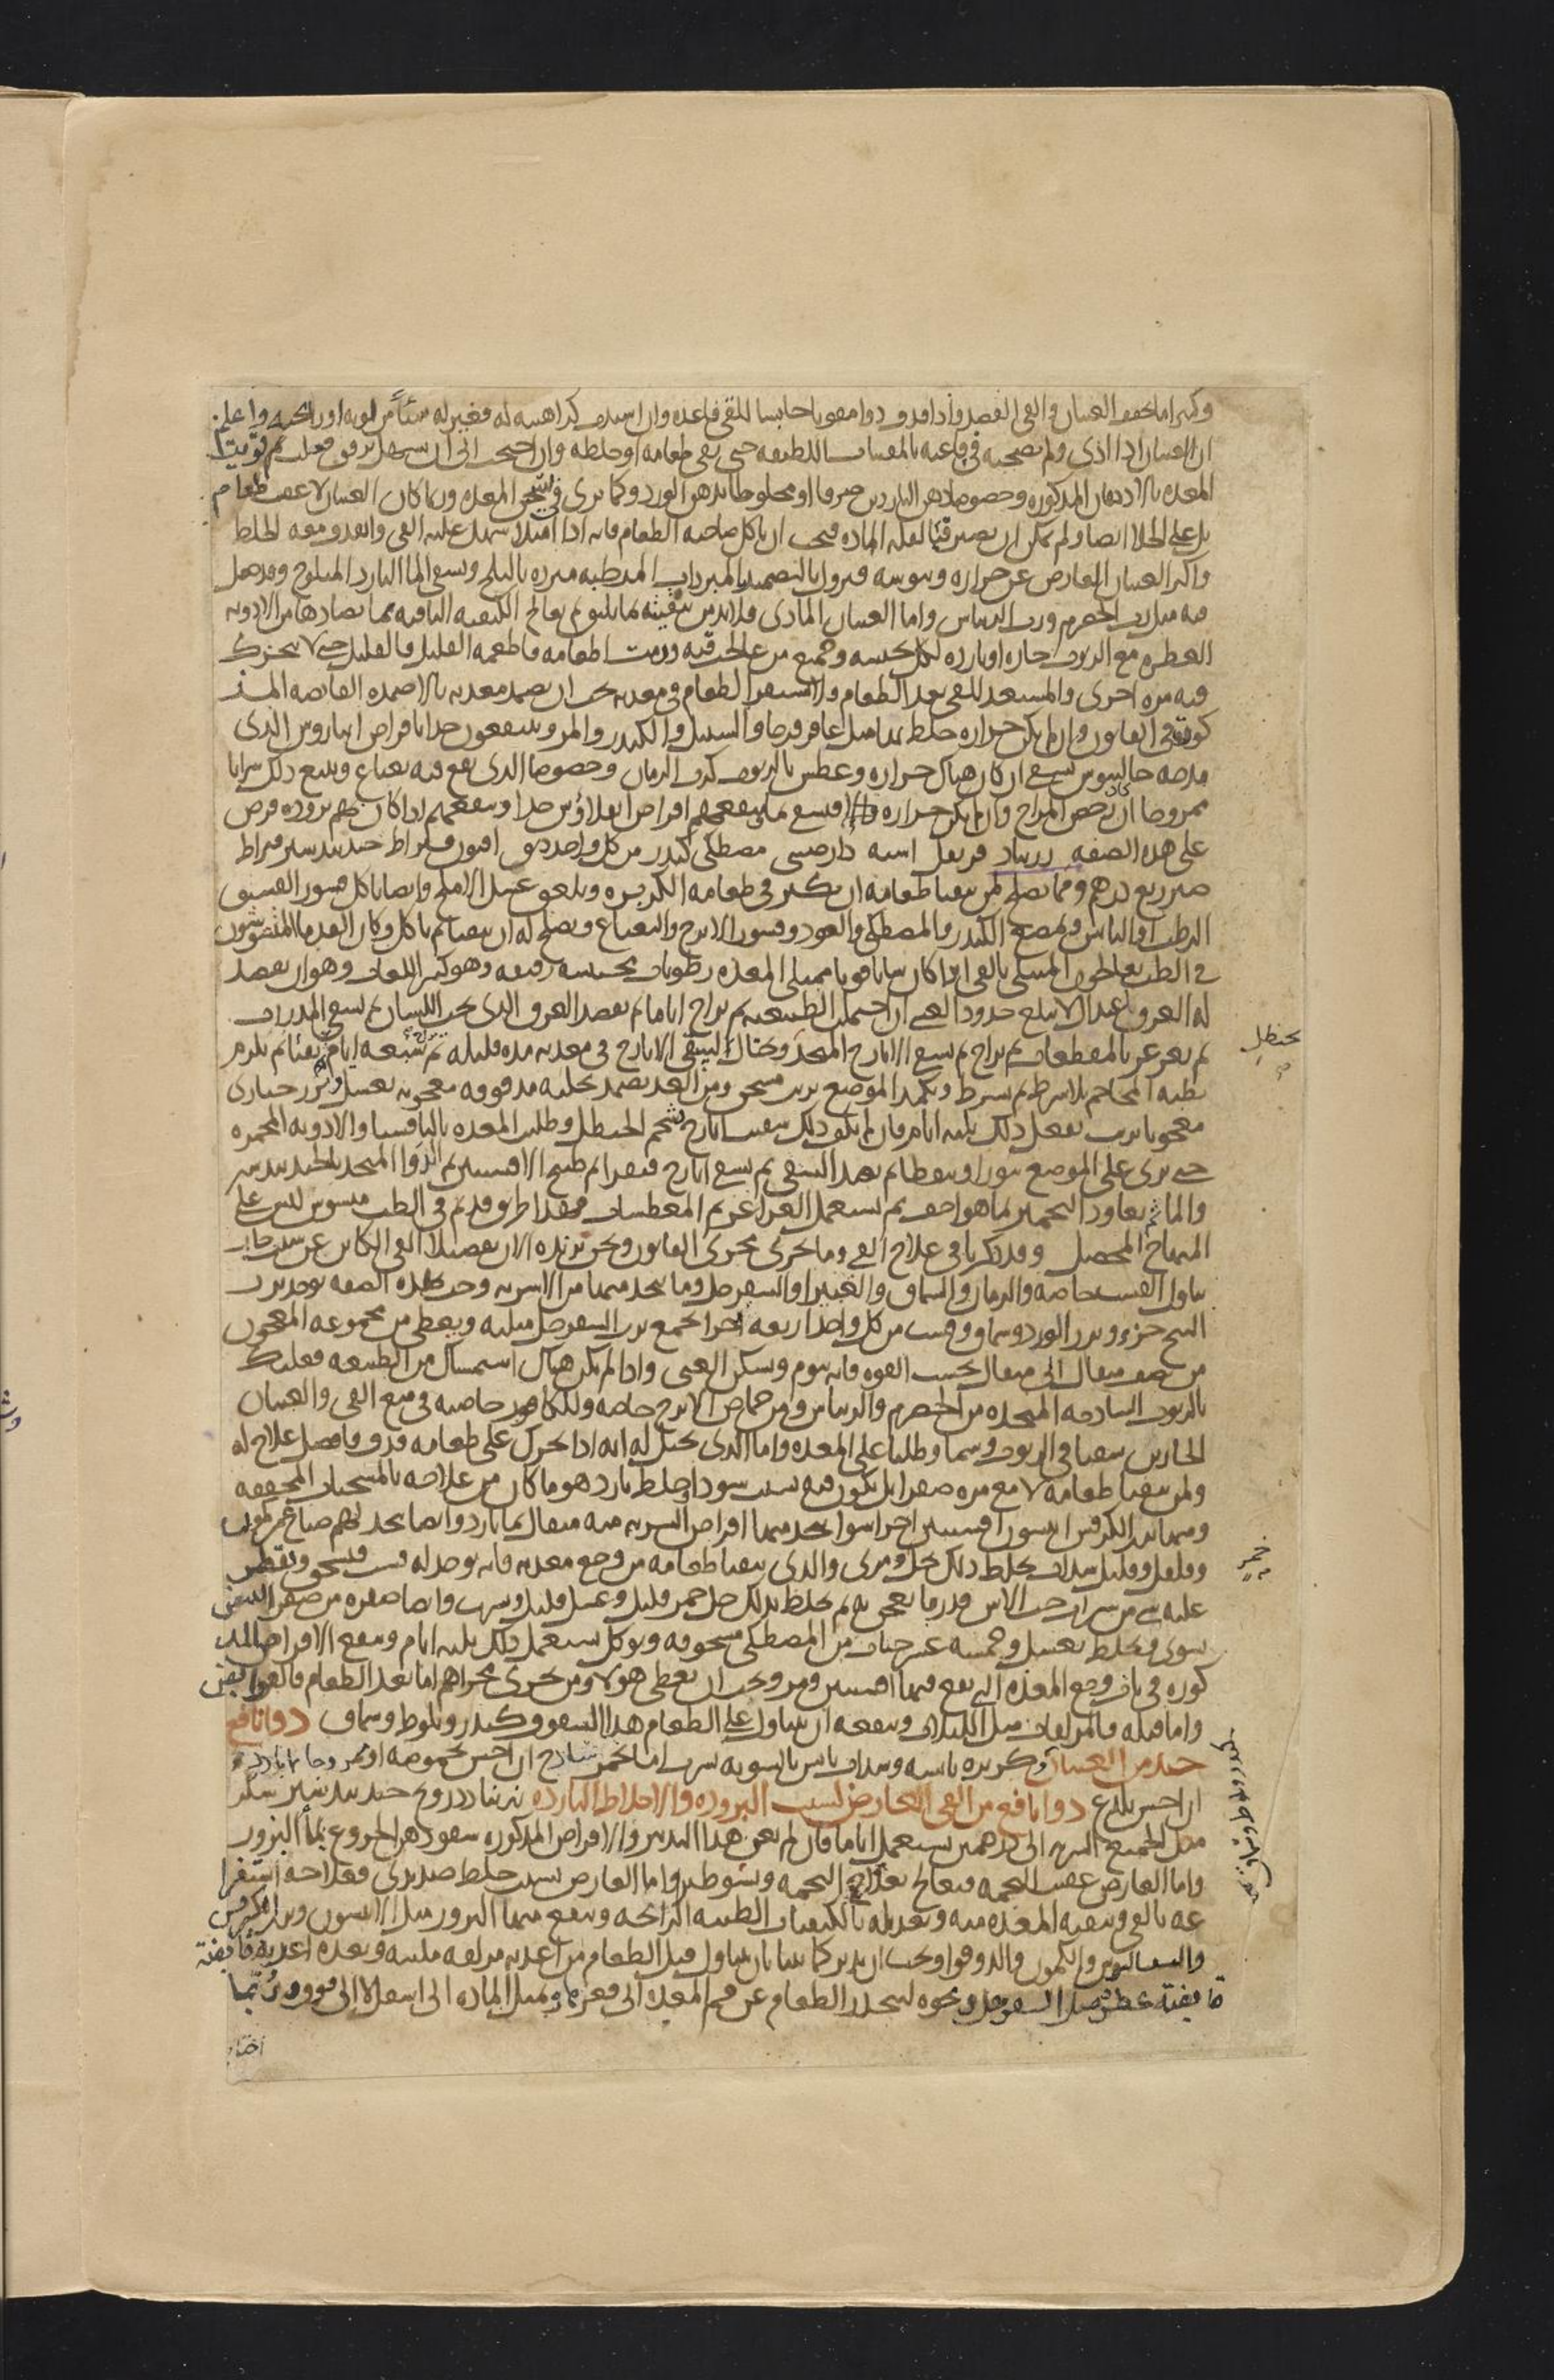 وكثيرا ما يخفف الغثيان والقى الفصد واذا قذف دوا مقويا حابسا للقى فاعده وان اشتدت كراهيته له فغير له شيئاً من لونه او رايحته واعلم
ان الغثيان اذا اذى ولم يصحبه قى فاعنه بالمقيات اللطيفة حتى يقى طعامه او خلطه وان احتيج الى ان يسهل برفق فعلت ثم قوّيت
المعده بالادهان المذكوره وخصوصا دهن الناردين صرفا او مخلوطا بدهن الورد وكما ترى فى تسخين المعده وربما كان الغثيان لا عقب طعام
بل على الخلا ايضا ولم يمكن ان يصير قيئا لقلة الماده فيجب ان ياكل صاحبه الطعام فانه اذا امتلا سهل عليه القى وانقذف معه الخلط
واكثر الغثيان العارض عن حراره ويبوسه فيزول بالتضميد بالمبردات المرطبه مبرده بالثلج وبسقى الما البارد المثلوج وقد جعل
فيه مثل رب الحصرم ورب الريباس واما الغثيان المادى فلا بد من تنقيته بما يليق ثم يعالج الكيفيه الباقيه بما يضادها من الادويه
العطره مع الربوب حاره او بارده لكل بحسبه وجميع من عالجت قيه ورمت اطعامه فاطعمه القليل فالقليل حتى لا يتحرك
فيه مره اخرى والمستعد للقى بعد الطعام ولا يستقر الطعام فى معدته يجب ان يضمد معدته بالاضمده القابضه المذ
كوره فى القانون وان لم يكن حراره خلط بها مثل عاقر قرحا والسنبل والكندر والمر وينتفعون جدا باقراص ايثاروس الذى
مدحه جالينوس يسقى ان كان هناك حراره وعطش بالربوب كرب الرمان وخصوصا الذى يقع فيه نعناع ويتبع ذلك شرابا
ممزوجا ان كان رخص المزاج وان لم يكن حراره فاقتصر ما ينفعهم اقراص ايلاؤس جدا وينفعهم اذا كان بهم بروده قرص
على هذه الصفه زرنباد قرنفل اشنه دارصينى مصطكى كندر من كل واحد دانق افيون قيراط جندبيدستر قيراط
صبر ربع درهم ومما يصلح لمن يتقيا طعامه ان يكثر فى طعامه الكزبره ويلعق عسل الاملج وايضا ياكل قشور الفستق
الرطب او اليابس ويمضغ الكندر والمصطكى والعود وقشور الاترج والنعناع ويصلح له ان يتقيا ثم ياكل وكان القدما المتشوشون
فى الطب يعاطون المبتلى بالقى اذا كان شابا قويا ممتلى المعده رطوبات محتبسه رقيقه وهو كثير اللعاب وهو ان يفصد
له العرق بقدر لا يبلغ حدود الغشى ان احتملت الطبيعه ثم يراح اياما ثم يفصد العرق الذى تحت اللسان ثم يسقى المدرات
ثم يغرغر بالمقطعات ثم يراح ثم يسقى الايارج المتخذ بحنظل ويحتال ليبقى الايارج فى معدته مده قليله ثم يراح سبعه ايام ثم يقيا ثم يلزم
بطنه المحاجم بلا شرط ثم بشرط ويكمد الموضع بزيت مسخن ومن الغد يضمد بحلبه مدقوقه معجونه بعسل وبزر خبازى
معجونا بزيت يفعل ذلك ثلثه ايام فان لم يكف ذلك سقيت ايارج شحم الحنظل وطليت المعده بالثافسيا والادويه المحمره
حتى يرى على الموضع بثورا ونفطا ثم يعيد السقى ثم يسقى ايارج فيقرا ثم طبيخ الافسنتين ثم الدوا المتخذ بالجندبيدستر
والما ثم يعاود التحمير بما هو اخف ثم يستعمل الغراغر ثم المعطسات فهذا طريق قديم فى الطب مشوش ليس على
المنهاج المحصل وقد ذكرنا فى علاج القى وما يجرى مجرى القانون ونحن نزيده الان تفصيلا القى الكاين عن سبب حار
يتناول القسب خاصه والرمان والسماق والغبيرا والسفرجل وما يتخذ منها من الاشربه وحب بهذه الصفه يوخذ بزر
البنج جزو وبزر الورد وسماق وقسب من كل واحد اربعه اجزا يجمع برب السفرجل مثليه ويعطى من مجموعه المعجون
من نصف مثقال الى مثقال بحسب القوه فانه ينوم ويسكن القى واذا لم يكن هناك استمساك من الطبيعه فعليك
بالربوب الساذجه المتخذه من الحصرم والريباس ومن حماض الاترج خاصه وللكافور خاصيه فى منع القى والغثيان
الحارين سقيا فى الربوب وشما وطليا على المعده واما الذى يخيل له انه اذا تحرك على طعامه قذف فافضل علاج له
ولمن يتقيا طعامه لا مع مره صفرا بل يكون فيه سبب سودا وخلط بارد هو ما كان من علاجه بالمسخنات المجففه
ومنها بزر الكرفس انيسون افسنتين اجزا سوا يتخذ منها اقراص الشربه منه مثقال بما بارد وايضا يتخذ لهم صباغ من كمون
وفلفل وقليل سذاب يخلط ذلك بخل ومرى والذى يتقيا طعامه من وجع معدته فانه يوخذ له قسب فيسحق ويقطر
عليه شى من شراب حب الاس قدر ما يعجن به ثم يخلط بذلك خل خمر قليل وعسل قليل ويشرب وايضا صفره من صفر البيض
شوى ويخلط بعسل وخمسه عشر حبات من المصطكى مسحوقه ويوكل يستعمل ذلك ثلثه ايام وينفع الاقراص المذ
كوره فى باب وجع المعده التى يقع فيها افسنتين ومر ويجب ان يعطى هولا ومن يجرى مجراهم اما بعد الطعام فالقوابض
واما قبله فالمزلقات مثل اللبلاب وينفعه ان يتناول على الطعام هذا السفوف كندر وبلوط وسماق دوا نافع
جيد من الغثيان كزبره يابسه وسذاب يابس بالسويه يشرب اما بخمر ساذج ان احس بحموضه او ممزوجا بما بارد
ان احس بلذع دوا نافع من القى العارض لسبب البروده والاخلاط البارده زرنباد درونج جندبيدستر سكر
مثل الجميع الشربه الى درهمين يستعمل اياما فان لم يغن هذا التدبير والاقراص المذكوره سقو دهن الخروع بماء البزور
واما العارض عقيب التخمه فيعالج بعلاج التخمه ويشو طبرو واما العارض بسبب خلط صديدى فعلاجه استفرا
غه بالقى وتنقيه المعده منه وتعديله بالكيفيات الطيبه الرائحه وينفع منها البزور مثل الانيسون وبزر الكرفس
والسساليوس والكمون والدوقوا ويجب ان يدبر كما بينا بان يتناول قبل الطعام من اغذيه مزلقه ملينه وبعده اغذيه قابضة
قابضة عطره مثل السفرجل ونحوه لينحدر الطعام عن فم المعده الى قعرها ويميل الماده الى اسفل لا الى فوق وربّما
بحنظل
خمر